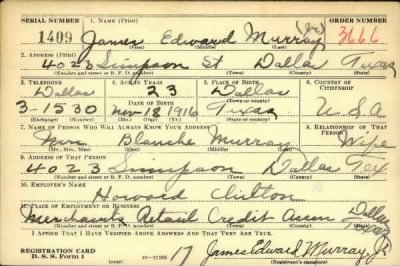 SERIAL NUMBER 1. NAME (Print) ORDER NUMBER
1409 James Edward Murray (Jr) 3666
(First) (Middle) (Last)
2. ADDRESS (Print)
4023 Simpson St Dallas Texas
(Number and street or R. F. D. number) (Town) (County) (State)
3. TELEPHONE 4. AGE IN YEARS 5. PLACE OF BIRTH 6. COUNTRY OF CITIZENSHIP
Dallas 23 Dallas
3-1530 DATE OF BIRTH (Town or county)
Nov 18 1916 Texas U.S.A
(Exchange) (Number) (Mo.) (Day) (Yr.) (State or country)
7. NAME OF PERSON WHO WILL ALWAYS KNOW YOUR ADDRESS 8. RELATIONSHIP OF THAT PERSON
Mrs. Blanche Murray Wife
(Mr., Mrs., Miss) (First) (Middle) (Last)
9. ADDRESS OF THAT PERSON
4023 Simpson Dallas Tex
(Number and street or R. F. D. number) (Town) (County) (State)
10. EMPLOYER'S NAME
Howard Chilton
11. PLACE OF EMPLOYMENT OR BUSINESS
Merchants Retail Credit Assn Dallas
Texas
(Number and street or R. F. D. number) (Town) (County) (State)
I AFFIRM THAT I HAVE VERIFIED ABOVE ANSWERS AND THAT THEY ARE TRUE.
REGISTRATION CARD
D. S. S. Form 1 17 James Edward Murray Jr